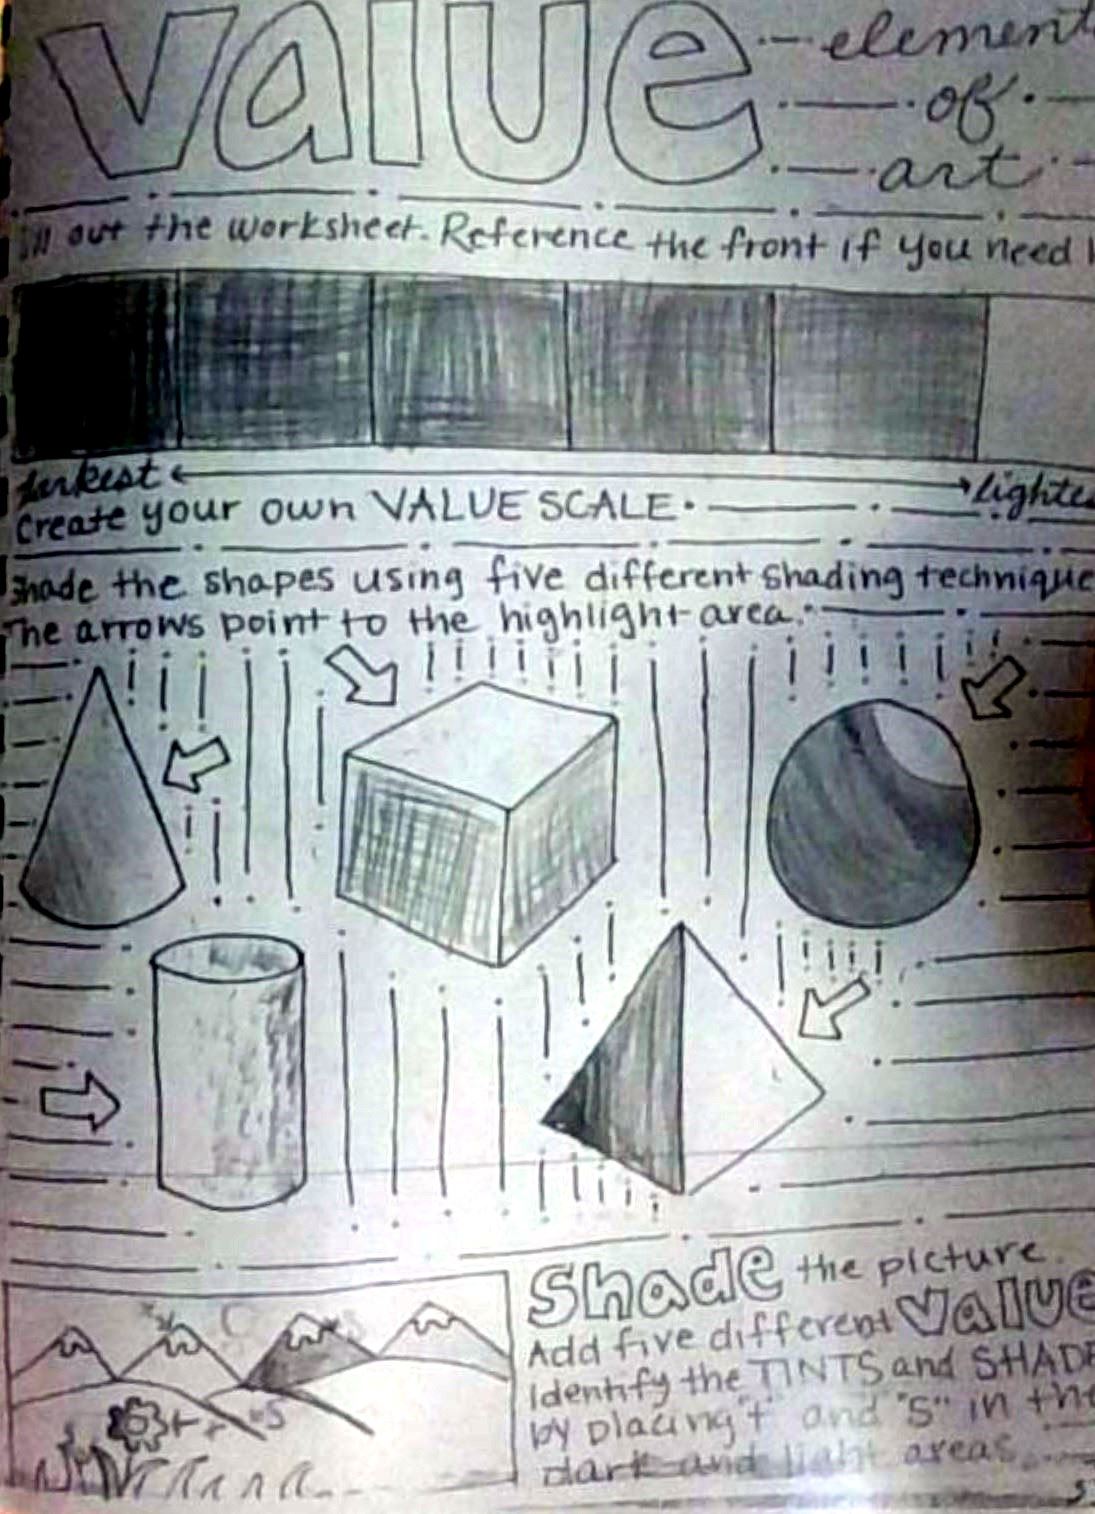 value
element
of
art
ill out the worksheet. Reference the front if you need
darkest lighte
Create your own VALUE SCALE.
Shade the shapes using five different shading technique
The arrows point to the highlight area.
Shade the picture.
Add five different value
Identify the TINTS and SHADE
by placing "t" and "S" in the
dark and light areas.
S